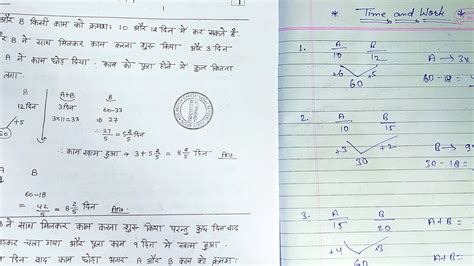 और B किसी काम को क्रमशः 10 और 12 दिन में कर सकते हैं.
र B ने साथ मिलकर काम करना शुरू किया और 3 दिन
A ने काम छोड़ दिया. काम को पूरा होने में कुल कितना
लगा.
B A+B B
12 दिन 3 दिन 60-33
5 3x11=33 ⇒ 27
60 ∴ 27/5 = 5 2/5 दिन
∴ काम खत्म हुआ → 3+5 2/5 = 8 2/5 दिन Ans.
B
60-18
= 42/5 = 8 2/5 दिन Ans.
B ने साथ मिलकर काम करना शुरू किया परन्तु कुछ दिन बाद
छोड़कर चला गया और पूरा काम 9 दिन में खत्म हुआ.
दिन बाद काम छोड़ा अगर A और B काम को क्रमशः
* Time and Work *
1. A/10 B/12 A → 3x
+6 +5 60-18=
60
2. A/10 B/15 B → 9x
+3 +2 30-18=
30
3. A/15 B/20 A+B =
+4 +3 A+B =
60